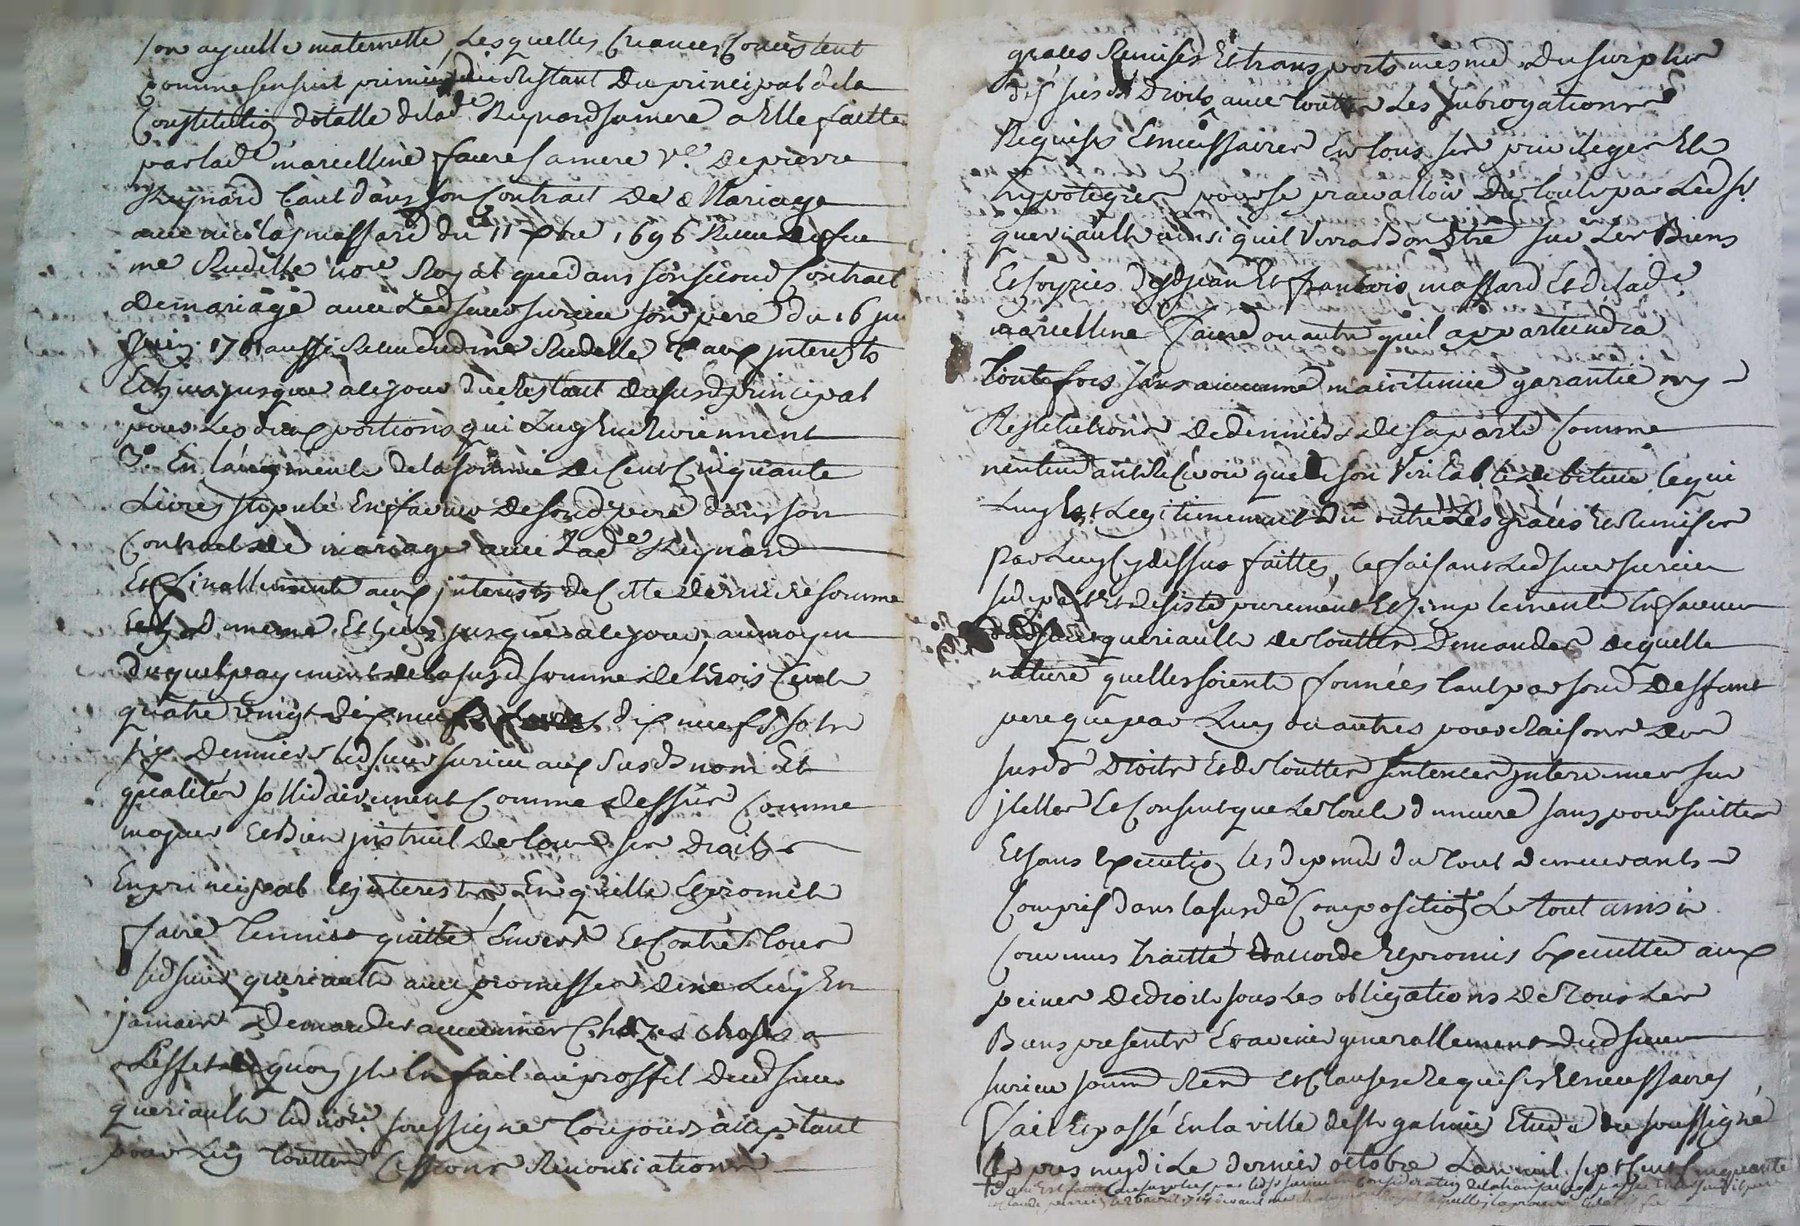 son ayeulle maternelle, Lesquelles Creances Concistent
comme sensuit primier du Restant Du principal dela
Constitution dotalle delade Reynard sa mere a Elle faitte
par lade marcelline faure sa mere ve De pierre
Reynard tant dans son Contrat De Mariage
avec nicolas massard du 11 xbre 1696 Receu de feu
me Rudelle nore Royal que dans son second Contrat
de mariage avec Led sieur surieu son pere du 16
Juin 1701 aussi Receu dud me Rudelle & aux interests
Echeus jusques a ce jour du Restant du susd principal
pour Les deux portions qui Luy En Reviennent
3o En laugment de la somme de Cent Cinquante
Livres stipulé En faveur de sond pere dans son
Contract de mariage avec Lade Reynard
Et finallement aux interests de Cette derniere somme
de meme Echeus jusques a ce jour, au moyen
duquel payement de la susd somme de trois Cent
quatre vingt dix neuf dix neuf sols
six deniers led sieur surieu aux susds nom Et
qualités sollidairement Comme dessus Comme
majeur Et Bien instruit de tous ses droits
En principal Et interests En quitte Et promet
faire tenir quitte Envers Et Contre tous
led sieur queriault avec promesse de ne Luy En
jamais Demander aucunnes Chozes
Leffet de quoy Il En fait au proffit dud sieur
queriault led nore soussigne toujours acceptant
pour Luy touttes Cessions Renonciations
graces Remises Et transports mesme du surplus
des susds Droits avec touttes Les subrogations
Requises Et necessaires En tous ses privileges Et
hypoteques pour se prevalloir du tout par Led sr
queriault ainsi quil verra Bon Estre sur Les Biens
Et hoyries desd jean Et francois massard Et de lade
marcelline faure ou autre quil appartiendra
toutefois sans aucunne maintenue garantie ny
Restitutions de deniers de sa part Comme
nentendant Recevoir que de son veritable debiteur Ce qui
Luy Est Legitimement dû outre Les graces Et Remises
par Luy Cy dessus faittes, Ce faisant Led sieur surieu
sedepart Et desiste purement Et simplement En faveur
dud sieur queriault de touttes Demandes de quelle
nature quelles soient formées tant par son deffunt
pere que par Luy ou autres pour Raisons des
susds Droits Et de touttes sentences intervenues sur
icelles Et Consent que Le tout demeure sans poursuittes
Et sans Execution les depends du tout demeurants
Compris dans la susde Composition Le tout ainsi
Convenus traitté Et accordé Et promis Executter aux
peines de droit sous Les obligations de tous Les
Biens presents Et avenir generallement dud sieur
surieu soumd Rend Et Clauses Requises Et necessaires
fait Et passé En la ville de st galmier Etude du soussigné
apres mydi Le dernier octobre Lan mil sept Cent Cinquante